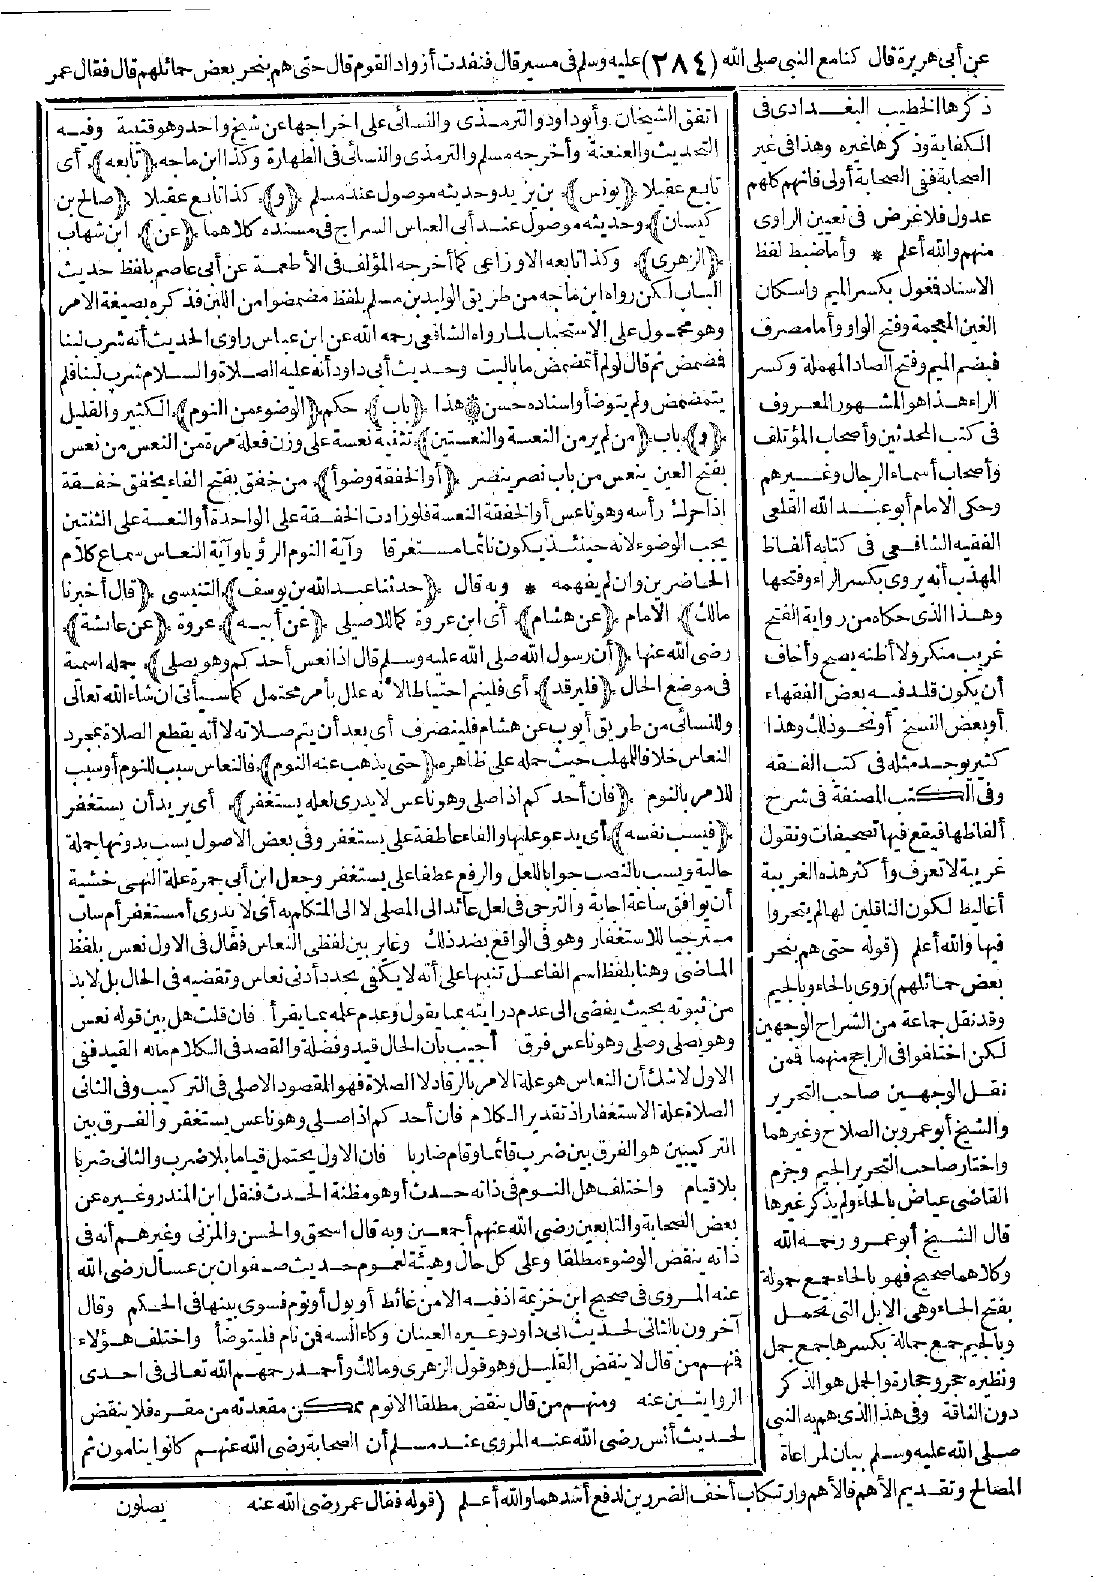 عن أبى هريرة قال كنا مع النبى صلى الله (٢٨٤) عليه وسلم فى مسير قال فنفدت أزواد القوم قال حتى هم بنحر بعض حمائلهم قال فقال عمر
ذكرها الخطيب البغدادى فى
الكفاية وذكرها غيره وهذا فى غير
الصحابة ففى الصحابة أولى فانهم كلهم
عدول فلا غرض فى تعيين الراوى
منهم والله أعلم * وأما ضبط لفظ
الاسناد فغول بكسر الميم واسكان
الغين المعجمة وفتح الواو وأما مصرف
فبضم الميم وفتح الصاد المهملة وكسر
الراء هذا هو المشهور المعروف
فى كتب المحدثين وأصحاب المؤتلف
وأصحاب أسماء الرجال وغيرهم
وحكى الامام أبو عبد الله القلعى
الفقيه الشافعى فى كتابه ألفاظ
المهذب أنه يروى بكسر الراء وفتحها
وهذا الذى حكاه من رواية الفتح
غريب منكر ولا أظنه يصح وأخاف
أن يكون قلد فيه بعض الفقهاء
أو بعض النسخ أو نحو ذلك وهذا
كثير يوجد مثله فى كتب الفقه
وفى الكتب المصنفة فى شرح
ألفاظها فيقع فيها تصحيفات ونقول
غريبة لا تعرف وأكثر هذه الغريبة
أغاليط لكون الناقلين لها لم يتحروا
فيها والله أعلم (قوله حتى هم بنحر
بعض حمائلهم) روى بالحاء وبالجيم
وقد نقل جماعة من الشراح الوجهين
لكن اختلفوا فى الراجح منهما فمن
نقل الوجهين صاحب التحرير
والشيخ أبو عمرو بن الصلاح وغيرهما
واختار صاحب التحرير الجيم وجزم
القاضى عياض بالحاء ولم يذكر غيرها
قال الشيخ أبو عمرو رحمه الله
وكلاهما صحيح فهو بالحاء جمع حمولة
بفتح الحاء وهى الابل التى تحمل
وبالجيم جمع جمالة بكسرها جمع جمل
ونظيره حجر وحجارة والجمل هو الذكر
دون الناقة وفى هذا الذى هم به النبى
صلى الله عليه وسلم بيان لمراعاة
المصالح وتقديم الأهم فالأهم وارتكاب أخف الضررين لدفع أشدهما والله أعلم (قوله فقال عمر رضى الله عنه
اتفق الشيخان وأبو داود والترمذى والنسائى على اخراجها عن شيخ واحد وهو قتيبة وفيه
التحديث والعنعنة وأخرجه مسلم والترمذى والنسائى فى الطهارة وكذا ابن ماجه ﴿تابعه﴾ أى
تابع عقيلا ﴿يونس﴾ بن يزيد وحديثه موصول عند مسلم ﴿و﴾ كذا تابع عقيلا ﴿صالح بن
كيسان﴾ وحديثه موصول عند أبى العباس السراج فى مسنده كلاهما ﴿عن﴾ ابن شهاب
﴿الزهرى﴾ وكذا تابعه الاوزاعى كما أخرجه المؤلف فى الأطعمة عن أبى عاصم بلفظ حديث
الباب لكن رواه ابن ماجه من طريق الوليد بن مسلم بلفظ مضمضوا من اللبن فذكره بصيغة الامر
وهو محمول على الاستحباب لما رواه الشافعى رحمه الله عن ابن عباس راوى الحديث أنه شرب لبنا
فمضمض ثم قال لو لم أتمضمض ما باليت وحديث أبى داود أنه عليه الصلاة والسلام شرب لبنا فلم
يتمضمض ولم يتوضأ واسناده حسن * هذا ﴿باب﴾ حكم ﴿الوضوء من النوم﴾ الكثير والقليل
﴿و﴾ باب ﴿من لم ير من النعسة والنعستين﴾ تثنية نعسة على وزن فعلة مرة من النعس من نعس
بفتح العين ينعس من باب نصر ينصر ﴿أو الخفقة وضوأ﴾ من خفق بفتح الفاء يخفق خفقة
اذا حرك رأسه وهو ناعس أو الخفقة النعسة فلو زادت الخفقة على الواحدة أو النعسة على الثنتين
يجب الوضوء لانه حينئذ يكون نائما مستغرقا وآية النوم الرؤيا وآية النعاس سماع كلام
الحاضرين وان لم يفهمه * وبه قال ﴿حدثنا عبد الله بن يوسف﴾ التنيسى ﴿قال أخبرنا
مالك﴾ الامام ﴿عن هشام﴾ أى ابن عروة كما للاصيلى ﴿عن أبيه﴾ عروة ﴿عن عائشة﴾
رضى الله عنها ﴿أن رسول الله صلى الله عليه وسلم قال اذا نعس أحدكم وهو يصلى﴾ جملة اسمية
فى موضع الحال ﴿فليرقد﴾ أى فلينم احتياطا لانه علل بأمر محتمل كما سيأتى ان شاء الله تعالى
وللنسائى من طريق أيوب عن هشام فلينصرف أى بعد أن يتم صلاته لا أنه يقطع الصلاة بمجرد
النعاس خلافا للمهلب حيث حمله على ظاهره ﴿حتى يذهب عنه النوم﴾ فالنعاس سبب للنوم أو سبب
للامر بالنوم ﴿فان أحدكم اذا صلى وهو ناعس لا يدرى لعله يستغفر﴾ أى يريد أن يستغفر
﴿فيسب نفسه﴾ أى يدعو عليها والفاء عاطفة على يستغفر وفى بعض الاصول يسب بدونها جملة
حالية ويسب بالنصب جوابا للعل والرفع عطفا على يستغفر وجعل ابن أبى جمرة علة النهى خشية
أن يوافق ساعة اجابة والترجى فى لعل عائد الى المصلى لا الى المتكلم به أى لا يدرى أمستغفر أم ساب
مترجيا للاستغفار وهو فى الواقع بضد ذلك وغاير بين لفظى النعاس فقال فى الاول نعس بلفظ
الماضى وهنا بلفظ اسم الفاعل تنبيها على أنه لا يكفى تجدد أدنى نعاس وتقضيه فى الحال بل لا بد
من ثبوته بحيث يفضى الى عدم درايته بما يقول وعدم علمه بما يقرأ فان قلت هل بين قوله نعس
وهو يصلى وصلى وهو ناعس فرق أجيب بان الحال قيد وفضلة والقصد فى الكلام ماله القيد ففى
الاول لا شك أن النعاس هو علة الامر بالرقاد لا الصلاة فهو المقصود الاصلى فى التركيب وفى الثانى
الصلاة علة الاستغفار اذ تقدير الكلام فان أحدكم اذا صلى وهو ناعس يستغفر والفرق بين
التركيبين هو الفرق بين ضرب قائما وقام ضاربا فان الاول يحتمل قياما بلا ضرب والثانى ضربا
بلا قيام واختلف هل النوم فى ذاته حدث أو هو مظنة الحدث فنقل ابن المنذر وغيره عن
بعض الصحابة والتابعين رضى الله عنهم أجمعين وبه قال اسحق والحسن والمزنى وغيرهم أنه فى
ذاته ينقض الوضوء مطلقا وعلى كل حال وهيئة لعموم حديث صفوان بن عسال رضى الله
عنه المروى فى صحيح ابن خزيمة اذ فيه الا من غائط أو بول أو نوم فسوى بينها فى الحكم وقال
آخرون بالثانى لحديث أبى داود وغيره العينان وكاء السه فمن نام فليتوضأ واختلف هؤلاء
فمنهم من قال لا ينقض القليل وهو قول الزهرى ومالك وأحمد رحمهم الله تعالى فى احدى
الروايتين عنه ومنهم من قال ينقض مطلقا الا نوم ممكن مقعدته من مقره فلا ينقض
لحديث أنس رضى الله عنه المروى عند مسلم أن الصحابة رضى الله عنهم كانوا ينامون ثم
يصلون